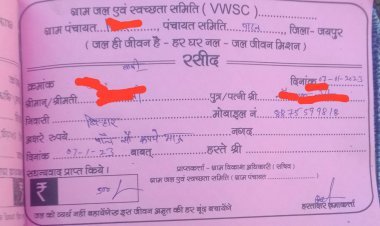 ग्राम जल एवं स्वच्छता समिति ( VWSC )
ग्राम पंचायत पंचायत समिति जिला - जयपुर
( जल ही जीवन है - हर घर नल - जल जीवन मिशन )
रसीद
क्रमांक दिनांक 07-01-2023
श्रीमान्/श्रीमती पुत्र/पत्नी श्री
निवासी मोबाइल नं
अक्षरे रुपये पाँच सौ रूपये मात्र नकद
दिनांक 07-1-23 बाबत् हस्ते श्री
सधन्यवाद प्राप्त किये।
प्राप्तकर्ता - ग्राम विकास अधिकारी ( सचिव )
ग्राम जल एवं स्वच्छता समिति ( ग्राम पंचायत
₹ 500/-
हस्ताक्षर जमाकर्ता
जल को व्यर्थ नहीं बहायेंगे इस जीवन अमृत की हर बूंद बचायेंगे